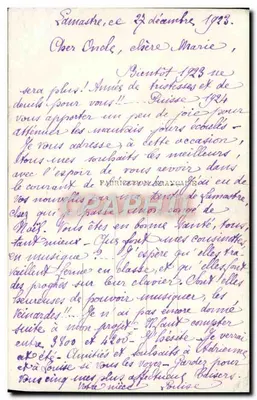 Lamastre, ce 27 décembre 1923.
Cher Oncle, chère Marie,
Bientôt 1923 ne
sera plus! Année de tristesses et de
deuils pour vous!! Puisse 1924
vous apporter un peu de joie pour
atténuer les mauvais jours écoulés -
Je vous adresse, à cette occasion,
tous mes souhaits les meilleurs
avec l'espoir de vous revoir dans
le courant de
vos nouvelles Lamastre,
chez qui
Noël. Vous êtes en bonne santé, tous,
tant mieux - Que font mes cousinettes
en musique? J'espère qu'elles tra-
vaillent ferme en classe, et qu'elles font
des progrès sur leur clavier. Sont-elles
heureuses de pouvoir musiquer, les
veinardes!! Je n'ai pas encore donné
suite à mon projet. Il faut compter
entre 3800 et 4200 - J'hésite - Je verrai
cet été - Amitiés et souhaits à Adrienne
et à Louise si vous les voyez - Gardez pour
vous cinq mes plus affectueux baisers.
Votre nièce Louise